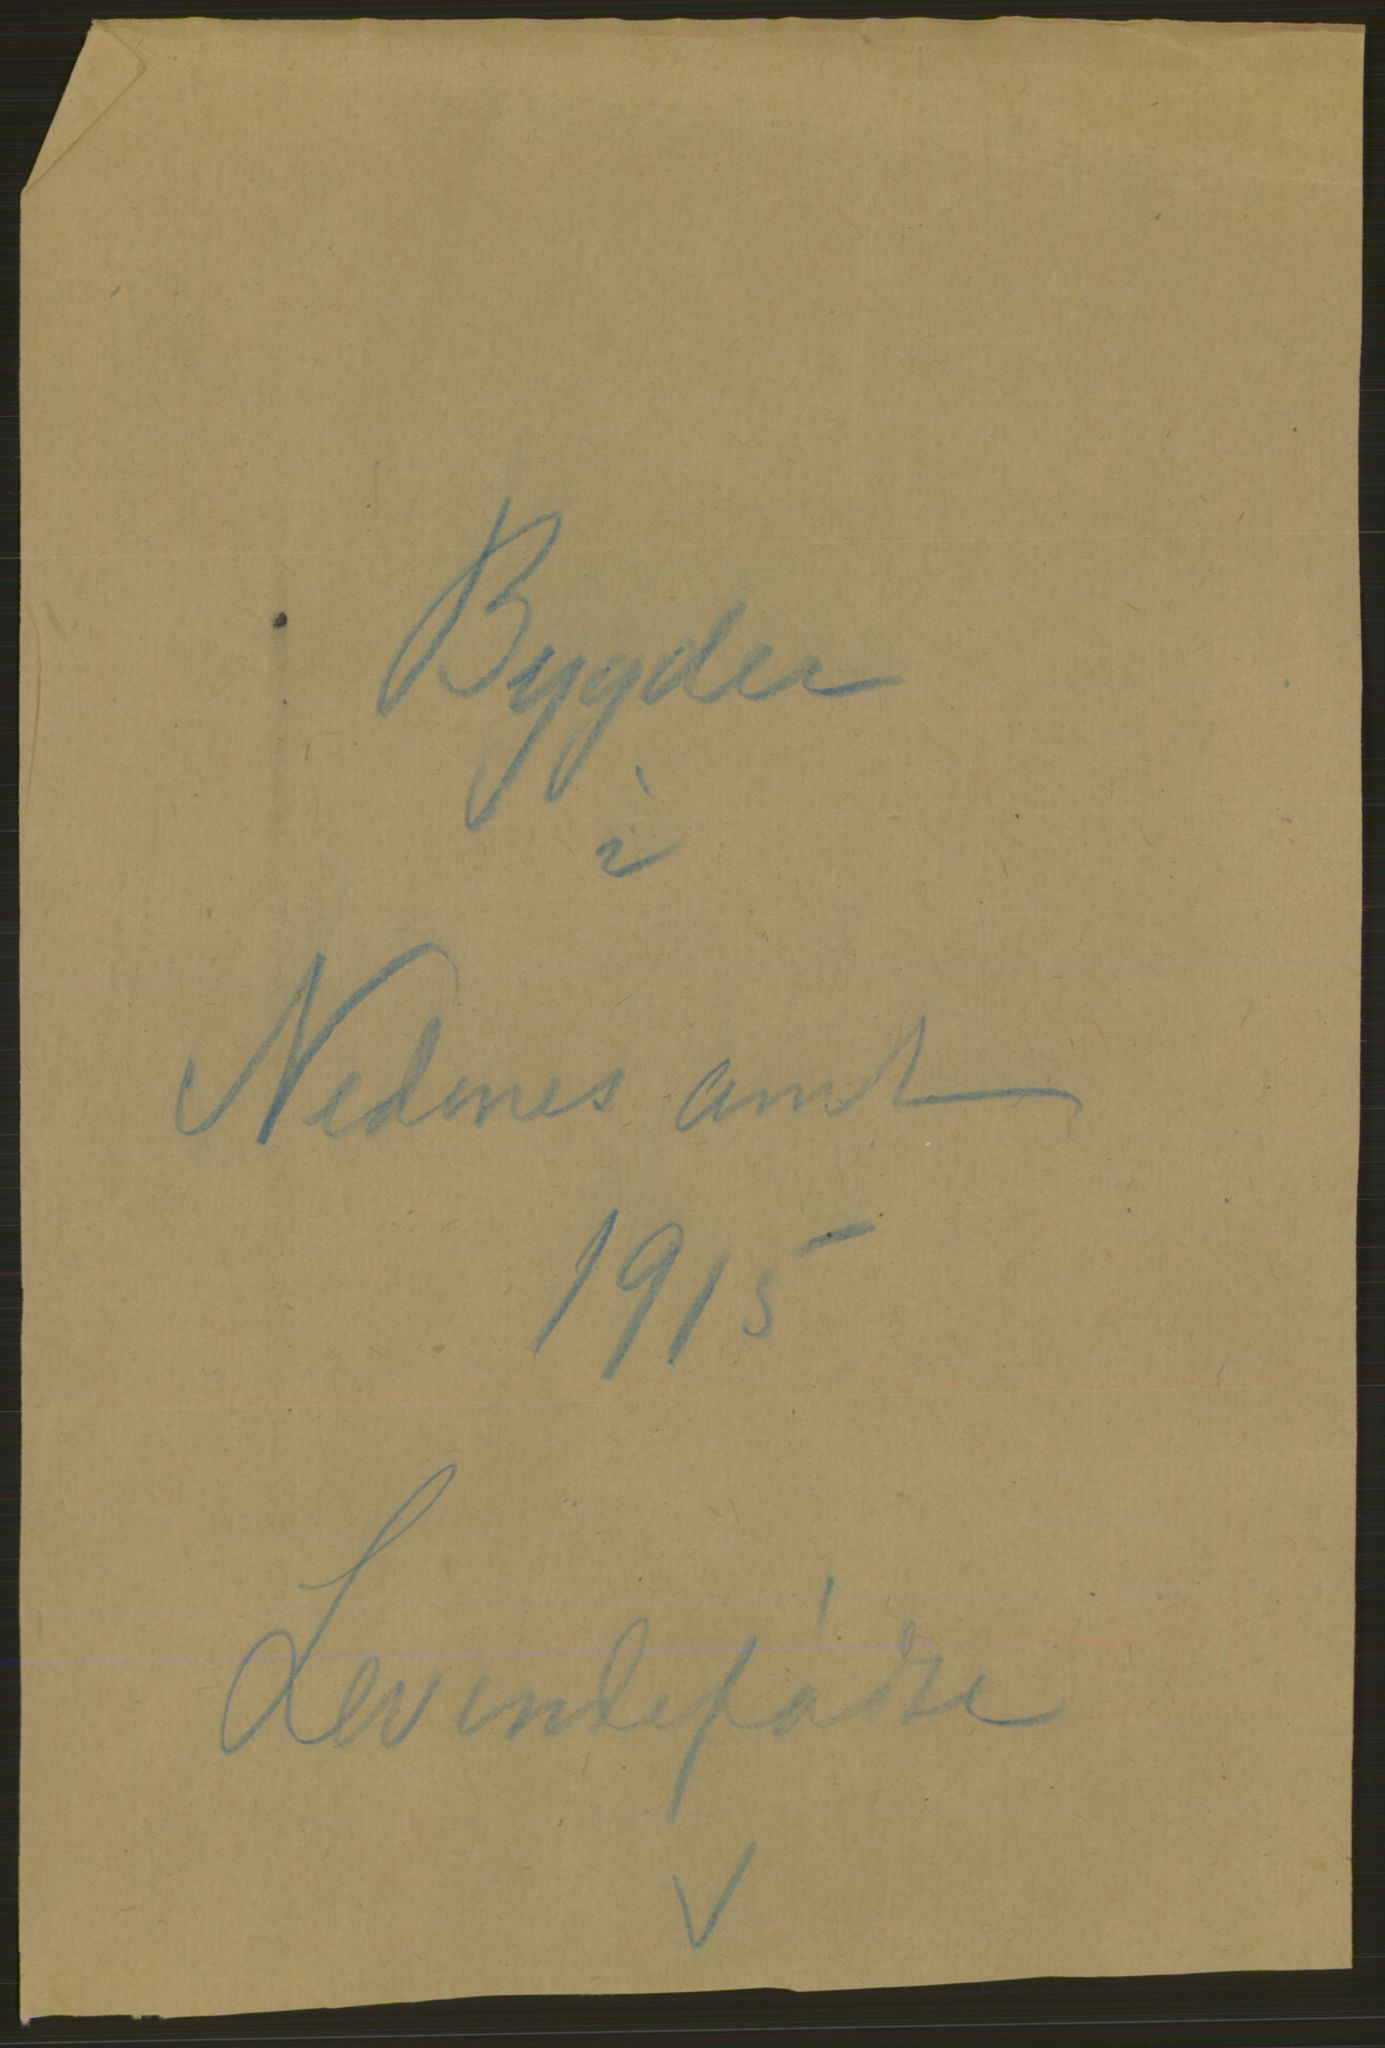 Bygder
i
Nedenes amt
1915
Levendefødte
V